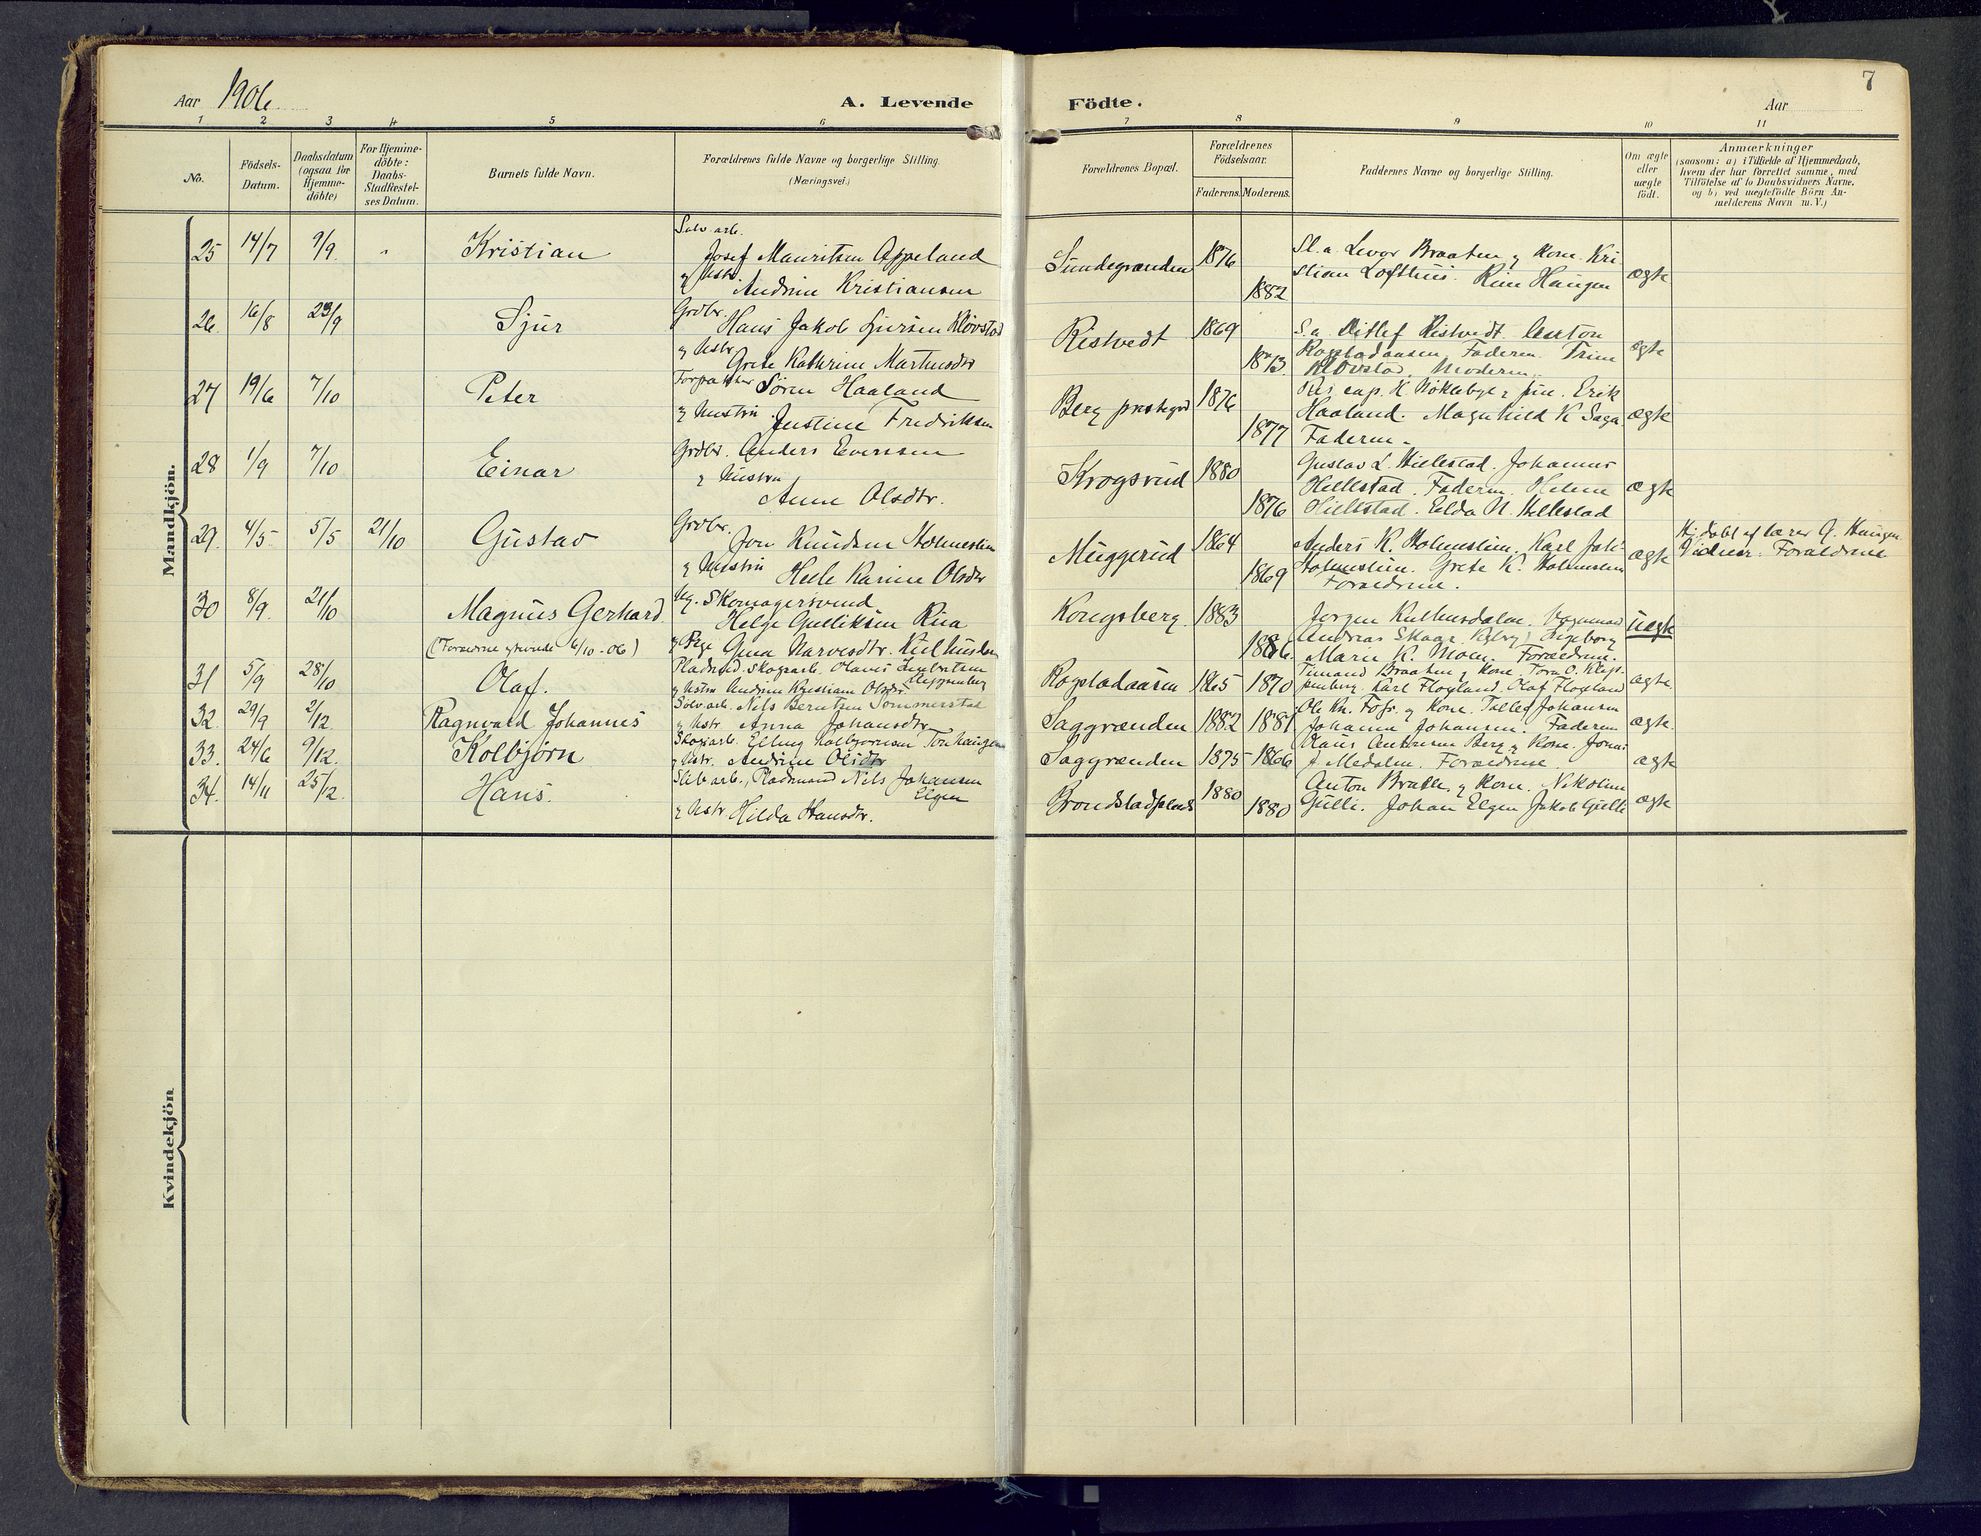 7
Aar 1906.
A. Levende
Födte.
Aar
1 2 3 4 5 6 7 8 9 10 11
No.
Födsels-
Datum.
Daabsdatum
(ogsaa for
Hjemme-
döbte)
For Hjemme-
döbte:
Daabs-
Stadfæstel-
ses Datum.
Barnets fulde Navn.
Forældrenes fulde Navne og borgerlige Stilling.
(Næringsvei.)
Forældrenes Bopæl.
Forældrenes
Födselsaar.
Faderens. Moderens.
Faddernes Navne og borgerlige Stilling.
Om ægte
eller
uægte
födt.
Anmærkninger
(saasom: a) i Tilfælde af Hjemmedaab,
hvem der har forrettet samme, med
Tilföielse af to Daabsvidners Navne.
og b) ved uægtefödte Börn An-
melderens Navn m. V.)
Mandkjön.
25 14/7 9/9. „ Kristian
Sølv. arb.
Josef Mauritsen Appeland
og Ustr
Andrine Kristiansen
Sundegrænden 1876 1882
Sl. a. Levor Braaten og Kone. Kri
stian Lofthus. Haugen
ægte
26. 16/8 23/9 Sjur
Grdbr.
Hans Jakob Sjursen Kløvstad
og Ustr
Grete Kathrine Martinsdtr
Ristvedt 1869 1873
S. a. Ditlef Ristvedt. Anton
Rogstadaasen. Faderen. Trine
Kløvstad. Moderen.
ægte
27 19/6 7/10 Peter
Forpakter Søren Haaland
og Hustru
Justine Fredriksen
Berg prestegrd 1876 1877
Res. cap. H Nökleby jun. Erik
Haaland. Magnhild K Saga
Faderen.
ægte
28 1/9 7/10 Einar
Grdbr. Anders Evensen
og Hustru
Anne Olsdtr.
Krogsrud 1880 1876
Gustav L. Hellestad. Johannes
Hellestad. Faderen. Helene
Hellestad. N. Hellestad
ægte
29. 4/5 5/5 21/10 Gustav
Grdbr.
Jon Knudsen Holmestein
og Hustru
Helle Karine Olsdtr
Muggerud 1864 1869
Anders K. Holmstein. Karl Joh.
Holmstein. Grete K. Holmstein
Forældrene.
ægte
Hj. døbt af lærer G. Haugen
Vidner: Forældrene
30 8/9. 21/10 Magnus Gerhard
(Forældrene 6/10 - 06)
Ug. Skomagersvend
Helge Gulliksen Rua
og Pige Gina Narvesdtr. Kulhusdalen
Kongsberg. 1883 1886.
Jørgen Kulhusdalen.
Andreas Skaar Kgbrg Ingeborg
Marie K. Moen. Forældrene.
uægte
31 5/9 28/10 Olaf.
Pladsmd. Skogsarb. Olaves
Kleppenberg
og Ustru Andrine Kristiane Olsdtr.
Rogstadaasen 1865 1870
Braaten og Kone. Tora O. Klep-
penberg. Karl Flogland. Olaf Flogland
ægte.
32. 29/9 2/12 Ragnvald Johannes
Sølv arb. Nils Berntsen Sommerstad
og Ustr. Anna Johansdtr
Saggrænden 1882 1881
Ole Kn. og Kone. Tallef Johansen
Johanna Johansen. Faderen
ægte
33. 24/6 9/12. Kolbjörn
Skogsarb. Elling Kolbjørnsen Torhaugen
og Ustr. Andrine Olsdtr
Saggrænden 1875 1866
Klaus Antonsen Berg og Kone. Jonas
J. Medalen. Forældrene.
ægte
34. 14/11 25/12. Hans.
Sølvarb., Pladsmand Nils Johansen
Elgen
og Ustr. Hilda Hansdtr.
1880 1880
Anton Braate og Kone. Nikoline
Gulli. Johan Elgen Jakob Gulli
ægte
Kvindekjön